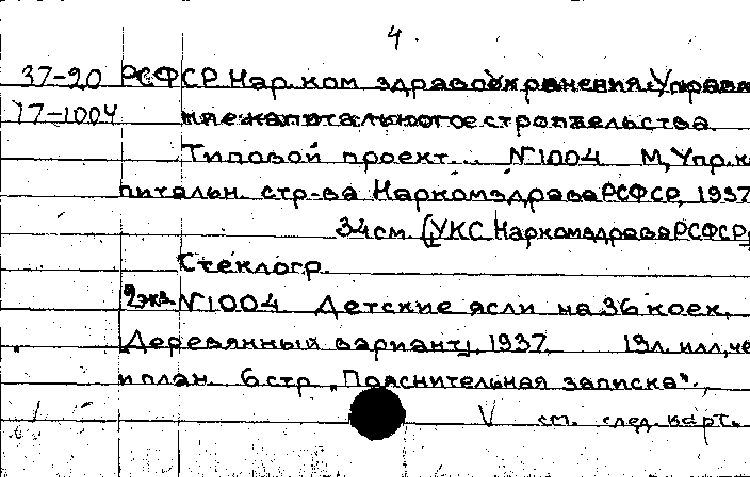 4.
37-20 РСФСР. Нар. ком здравоохранения. Управле
17-1004 ние капитального строительства.
Типовой проект... N1004 М, Упр. ка
питальн. стр-ва Наркомздрава РСФСР, 1937
34 см. (УКС Наркомздрава РСФСР)
Стеклогр.
2 экз. N1004 Детские ясли на 36 коек.
Деревянный вариант, 1937. 19 л. илл, че
и план. 6 стр „Пояснительная записка".,
V см. след. карт.